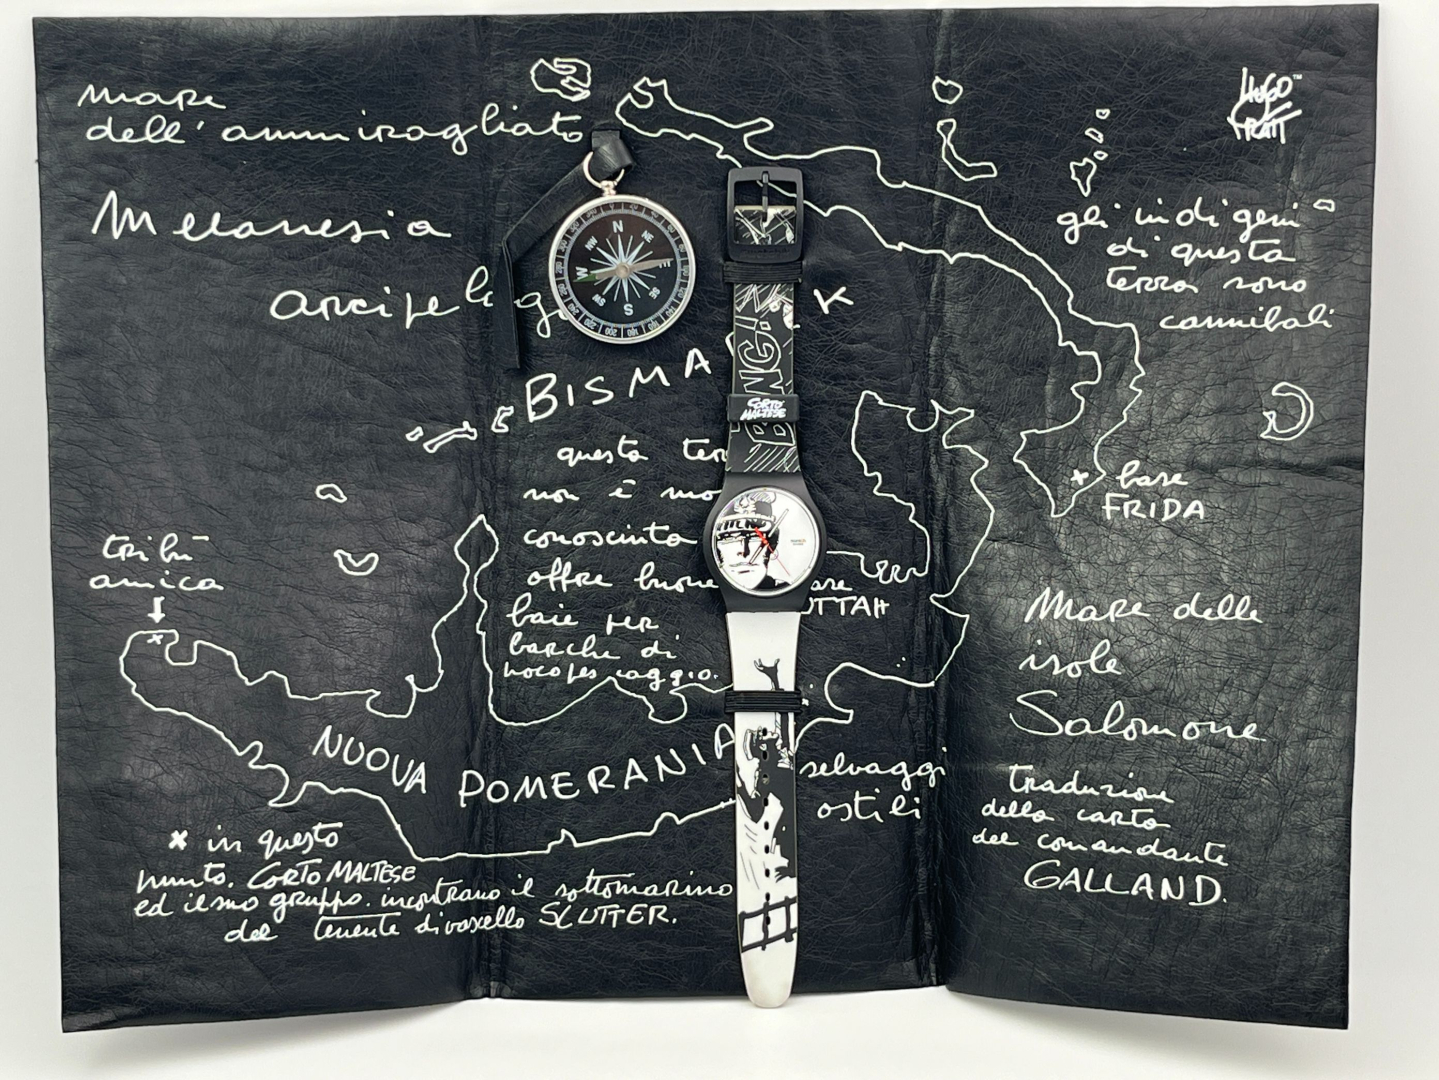 mare
dell'ammiragliato
Melanesia
arcipelag
BISMA K
HUGO
PRATT
TM
gli indigeni
di questa
terra sono
cannibali
N
NE
E
SE
S
SW
W
NW
BANG!
CORTO
MALTESE
questa ter
non è mo
conosciuta
offre buone
baie per
barche di
poco pescaggio.
base
FRIDA
tribù
amica
Mare delle
isole
Salomone
NUOVA POMERANIA
selvaggi
ostili
x in questo
punto. CORTO MALTESE
ed il suo gruppo. incontrano il sottomarino
del tenente di vascello SLUTTER.
traduzione
della carta
del comandante
GALLAND.